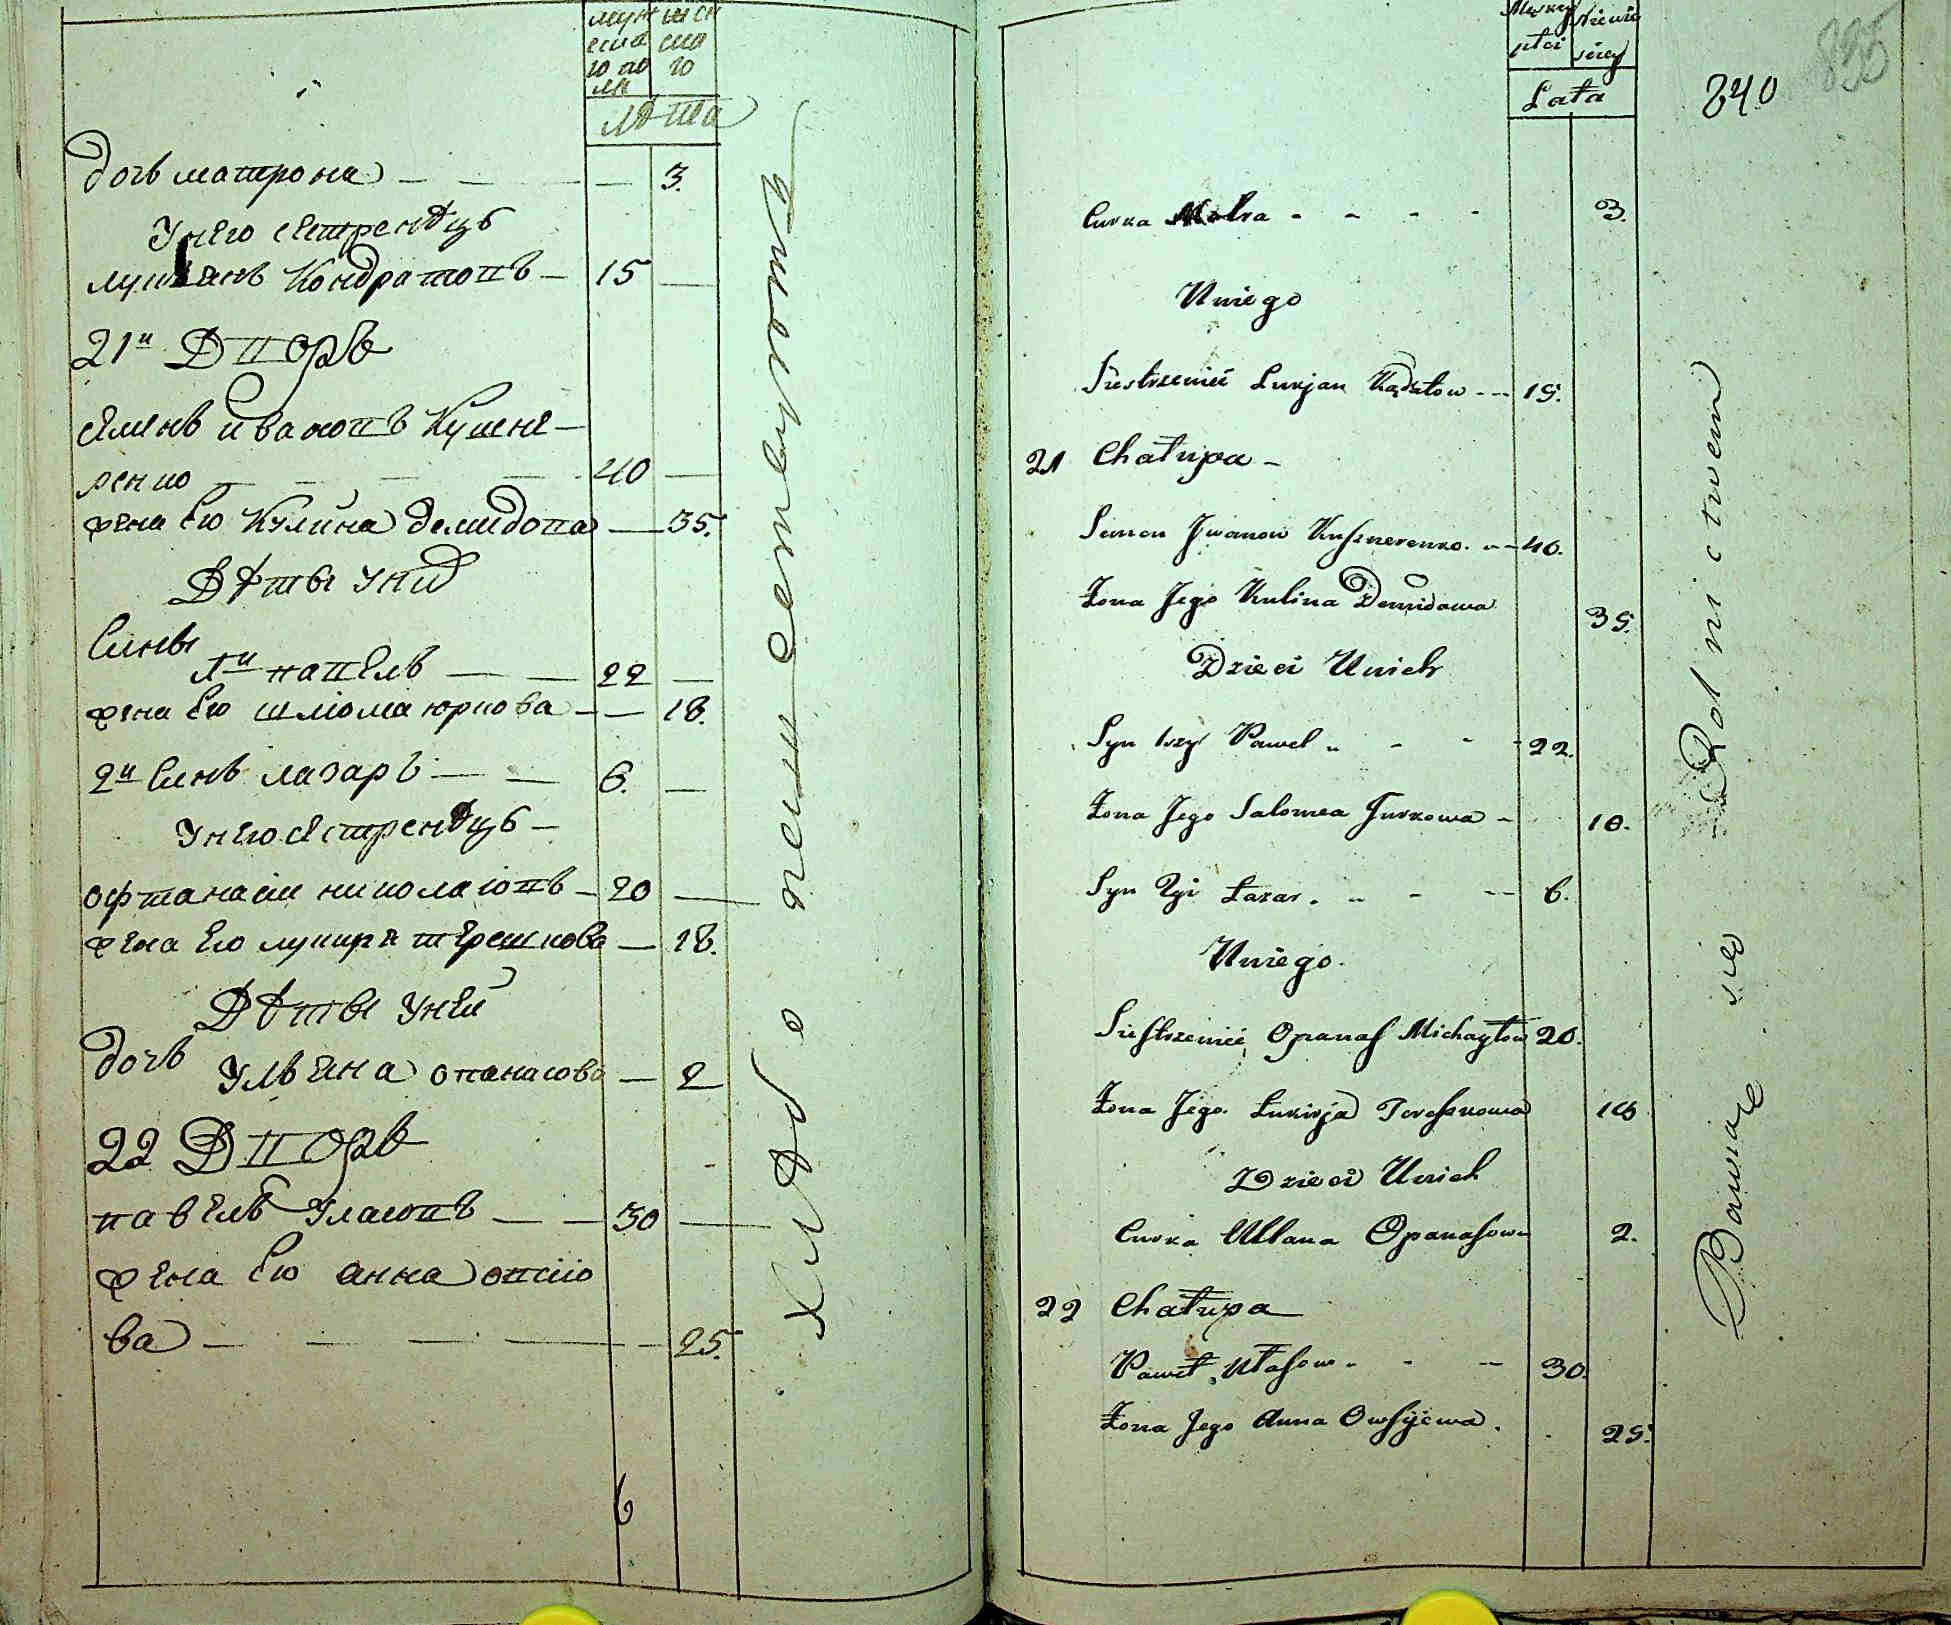 муж
ска
го по
ла
женска
го
лѣта
дочь матрона — — — 3.
У него сестренѣцъ
лукьянъ Кондратовъ — 15 —
21й Дворъ
семенъ ивановъ Кушне-
ренко — — — 40 —
жена Его Кулина демидова — 35.
Дѣты у них
Синъ
1й павелъ — — 22 —
жена Его шлома юркова — — 18.
2й Синъ лазаръ — — 6. —
У него сестренѣцъ —
офтанасии николаювъ — 20 —
жена Его лукиря терешкова — 18.
Дѣты у ней
дочь Ульяна опанасова — 2
22 Дворъ
павелъ Уласовъ — — 30 —
жена Его анна овсiю
ва — — — — 25.
6
хлѣбо пашествуютъ
840
835
Męzkiej
płci
Niewie
ściej
Lata
Curka Motra - - - - 3.
Uniego
Siestrzeniec Lurjan Kądratow -- 15.
21 Chałupa -
Semen Jwanow Kusznerenko. -- 40.
Żona Jego Kulina Demidowa 35.
Dzieci Unich
Syn 1szy Paweł - - - 22.
Żona Jego Salomea Jurkowa - 18.
Syn 2gi Łazar. - - -- 6.
Uniego.
Siestrzeniec Opanas Michayłow 20.
Żona Jego. Łukirja Tereszkowa 18
Dzieci Unich
Curka Ullana Opanasowa 2.
22 Chałupa
Paweł Ułasow - - -- 30.
Żona Jego Anna Owsijewa. 25.
Bawią się Rolnictwem